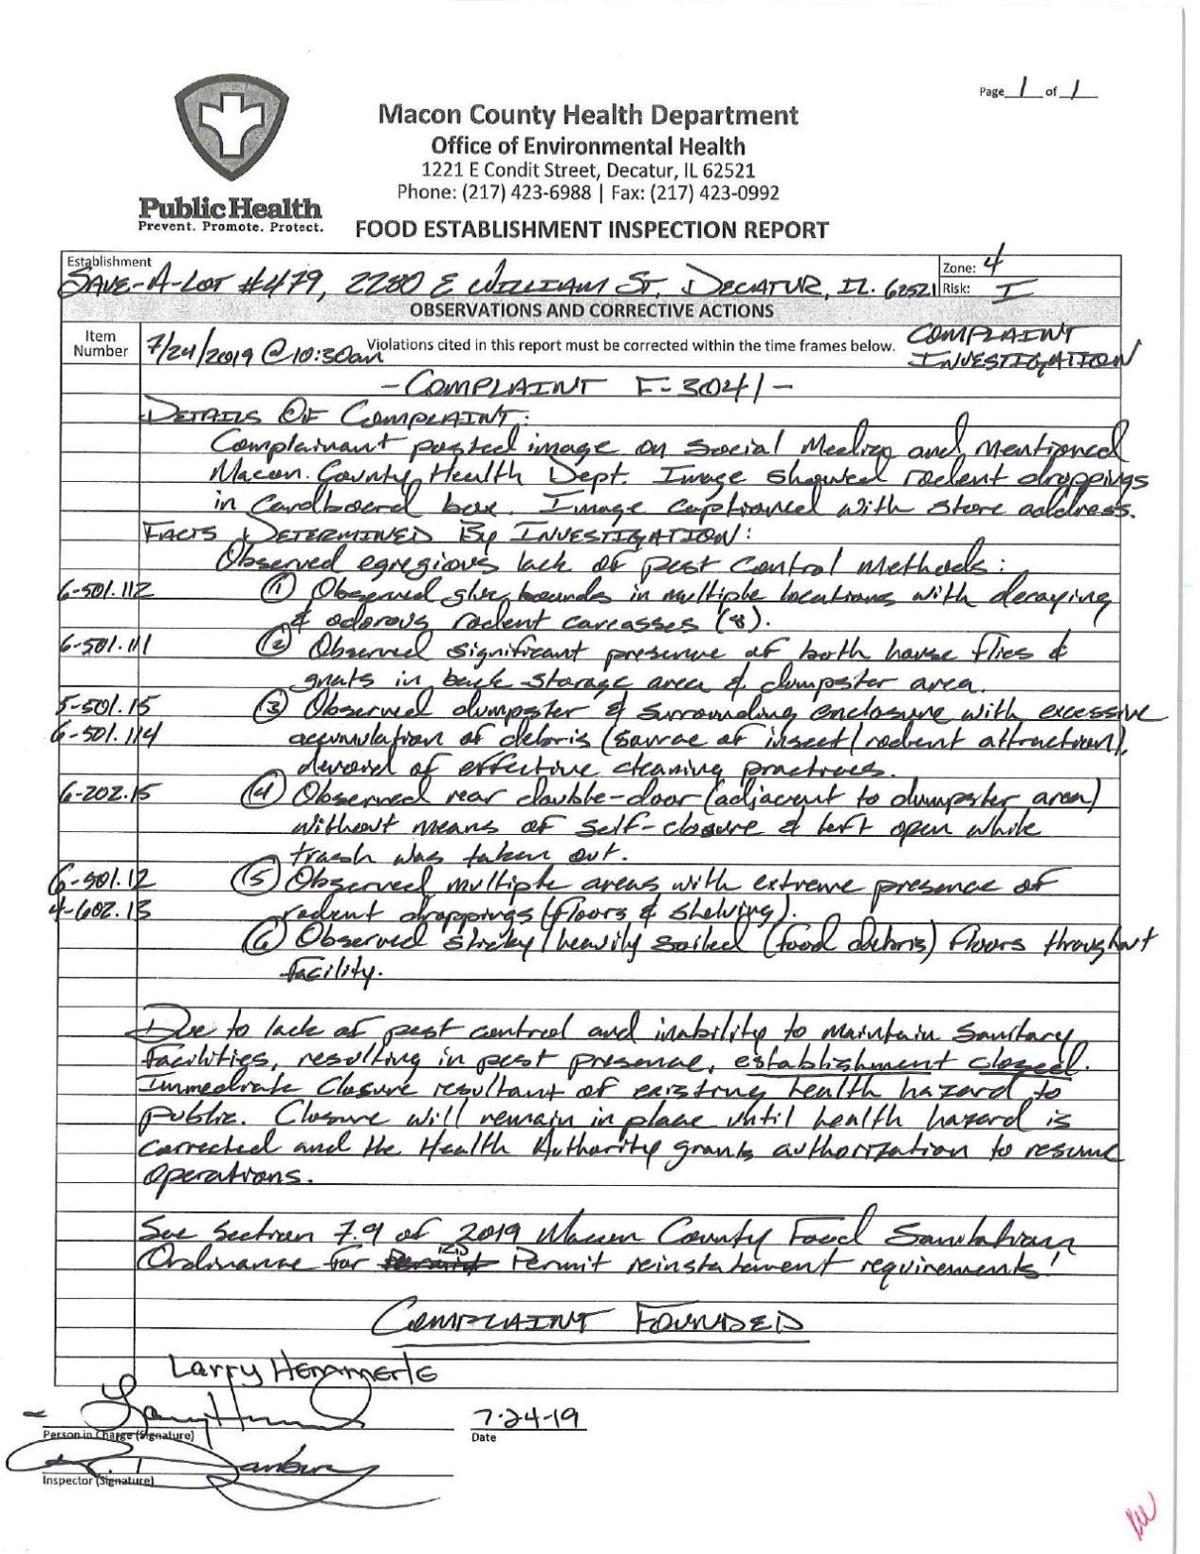 Page 1 of 1
Macon County Health Department
Office of Environmental Health
1221 E Condit Street, Decatur, IL 62521
Phone: (217) 423-6988 | Fax: (217) 423-0992
Public Health
Prevent. Promote. Protect.
FOOD ESTABLISHMENT INSPECTION REPORT
Establishment
SAVE-A-LOT #479, 2280 E WILLIAM ST, DECATUR, IL. 62521
Zone: 4
Risk: I
OBSERVATIONS AND CORRECTIVE ACTIONS
Item Number
7/24/2019 @ 10:30am Violations cited in this report must be corrected within the time frames below. COMPLAINT INVESTIGATION
- COMPLAINT F-3041 -
DETAILS OF COMPLAINT:
Complainant posted image on Social Media and mentioned
Macon County Health Dept. Image showed rodent droppings
in Cardboard box. Image captioned with store address.
FACTS DETERMINED BY INVESTIGATION:
Observed egregious lack of pest control methods:
6-501.112 ① Observed glue boards in multiple locations with decaying
& odorous rodent carcasses (8).
6-501.111 ② Observed significant presence of both house flies &
gnats in back storage area & dumpster area.
5-501.15 ③ Observed dumpster & surrounding enclosure with excessive
6-501.114 accumulation of debris (source of insect/rodent attraction),
devoid of effective cleaning practices.
6-202.15 ④ Observed rear double-door (adjacent to dumpster area)
without means of self-closure & left open while
trash was taken out.
6-501.12 ⑤ Observed multiple areas with extreme presence of
4-602.13 rodent droppings (floors & shelving).
⑥ Observed sticky/heavily soiled (food debris) floors throughout
facility.
Due to lack of pest control and inability to maintain sanitary
facilities, resulting in pest presence, establishment closed.
Immediate Closure resultant of existing health hazard to
public. Closure will remain in place until health hazard is
corrected and the Health Authority grants authorization to resume
operations.
See Section 7.9 of 2019 Macon County Food Sanitation
Ordinance for Permit reinstatement requirements!
COMPLAINT FOUNDED
Larry Hemmerle
7-24-19
Person in Charge (Signature)
Date
Inspector (Signature)